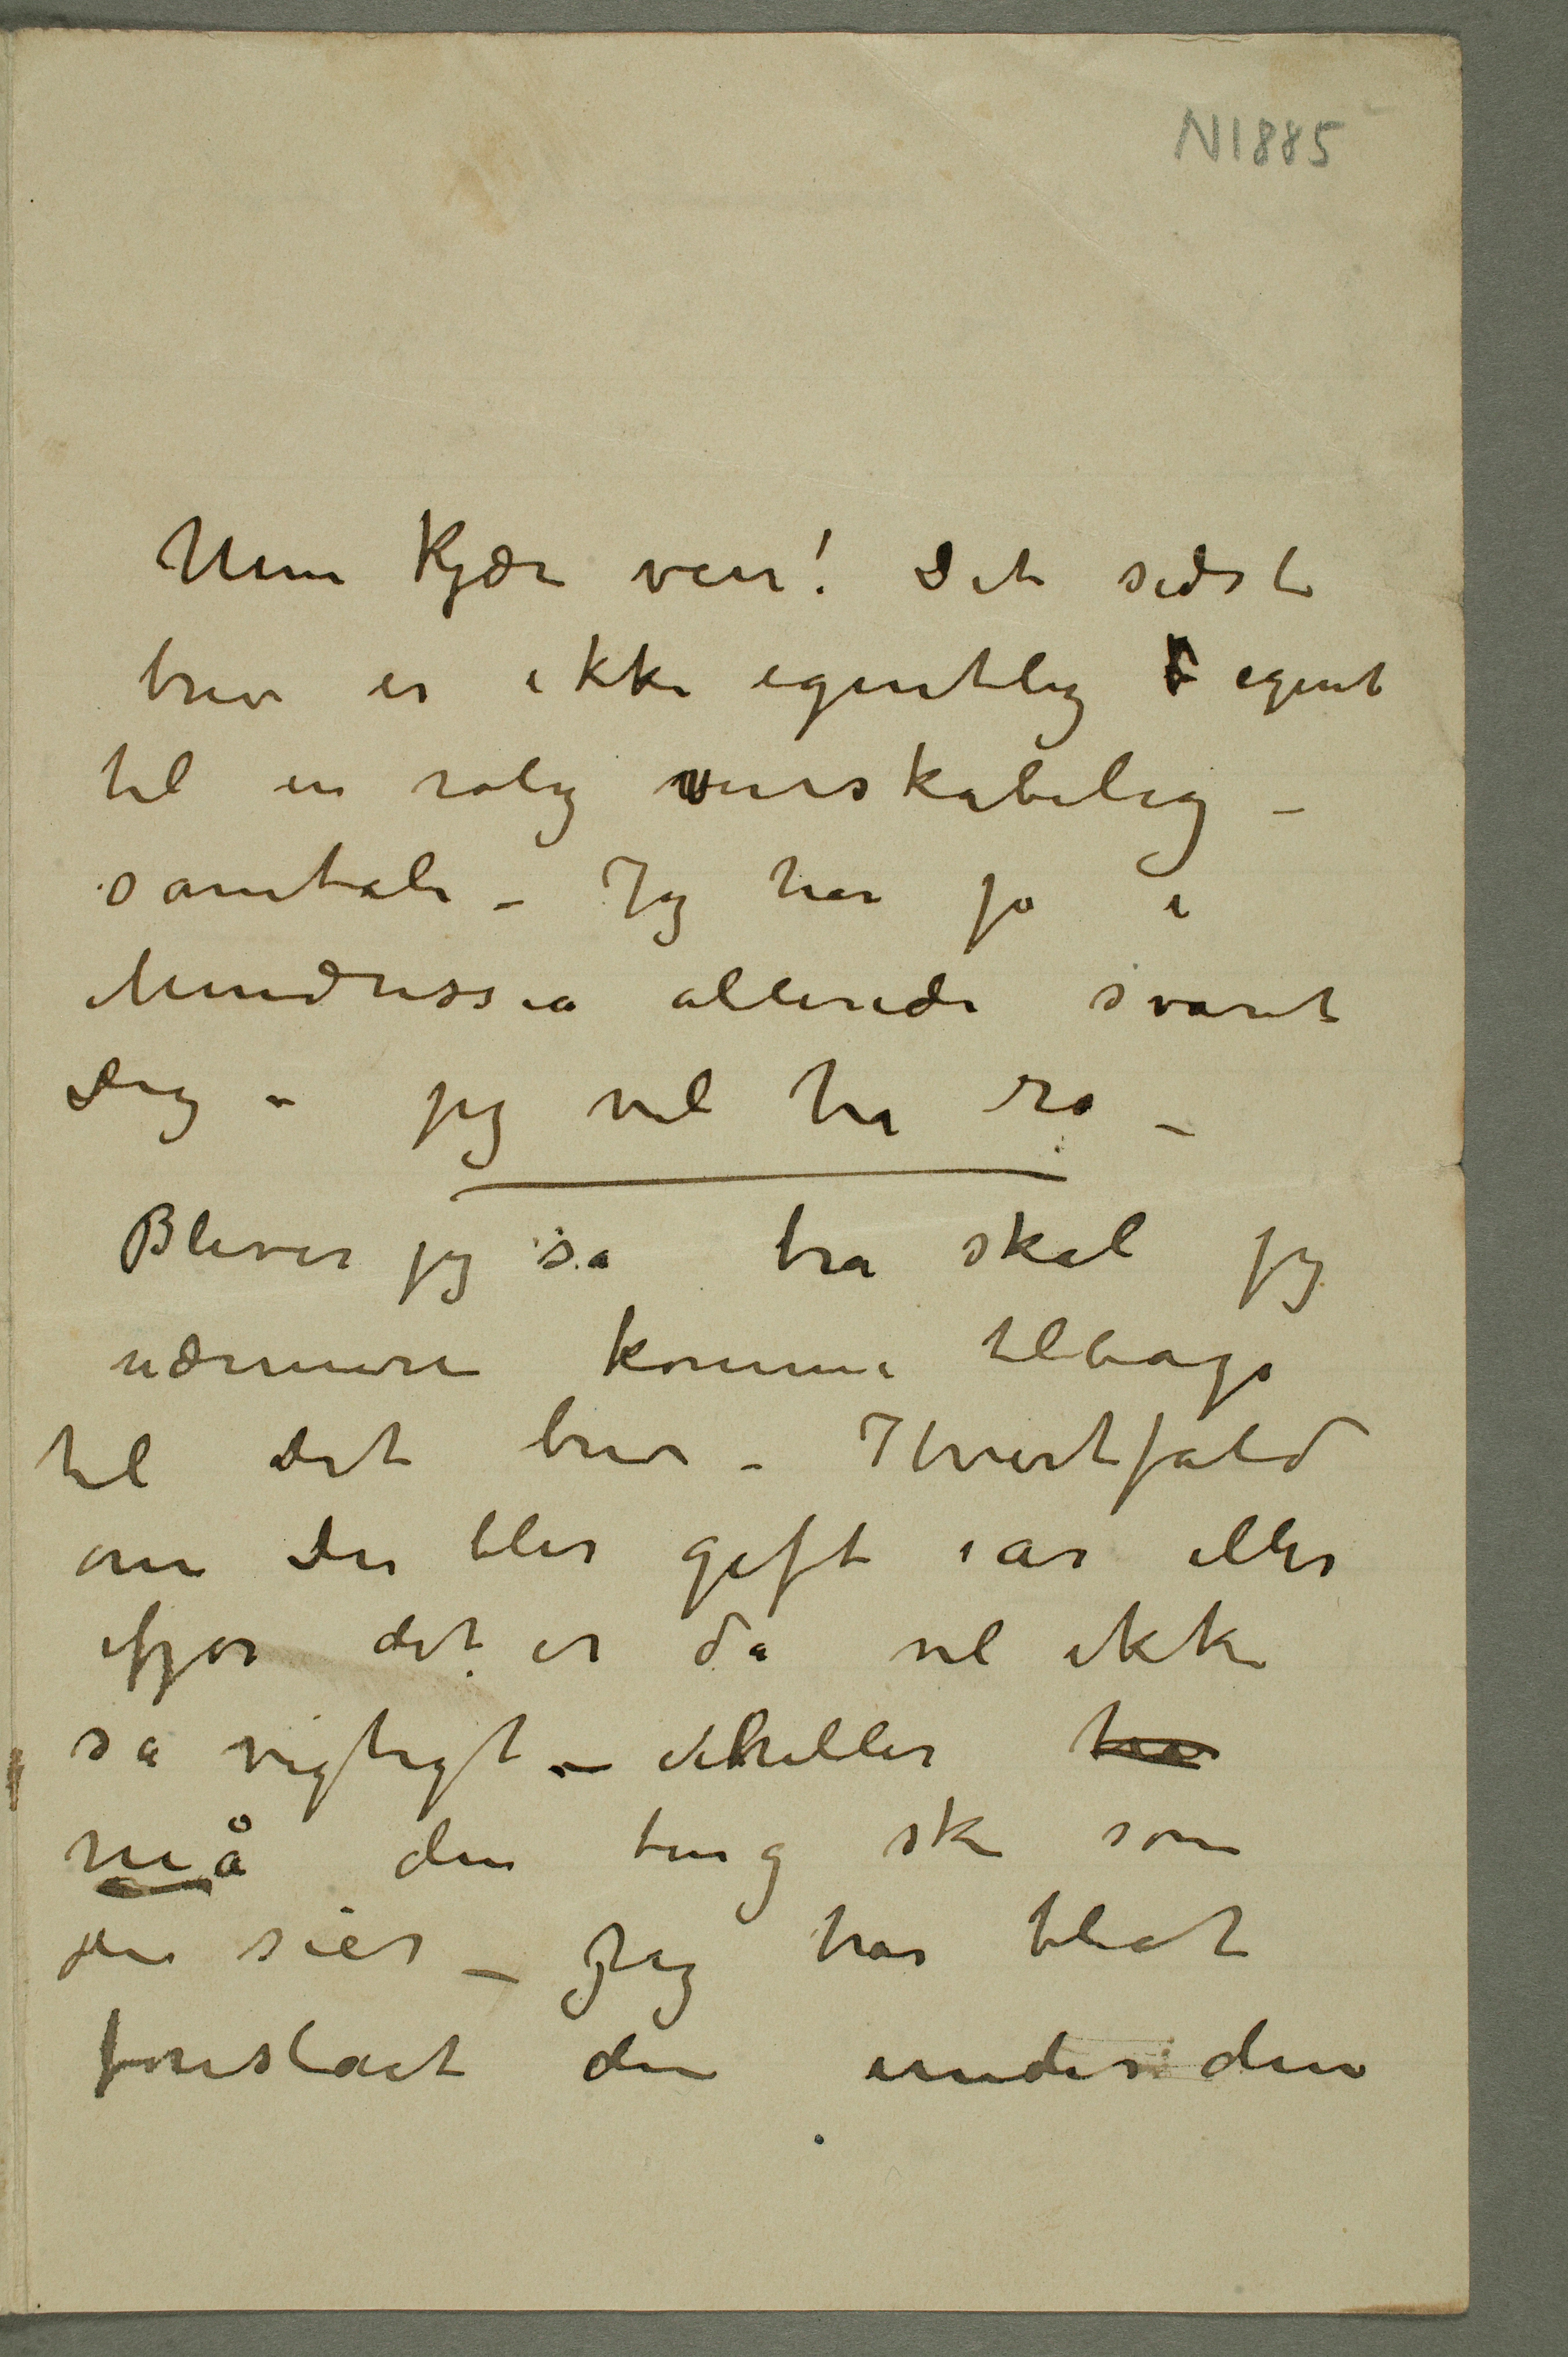 N1885
Min kjære ven! Dit sidste
brev er ikke egentlig egent
til en rolig venskabelig –
samtale – Jeg har jo i
allerede svaret
Dig – jeg vil ha ro –
Bliver jeg så bra skal jeg
nærmere komme tilbage
til Dit brev – Ihvertfald
om Du blir gift iår eller
ifjor det er da vel ikke
så vigtigt – heller ha
må den ting ske som
Du siér – Jeg har blot
foreslåt den under den